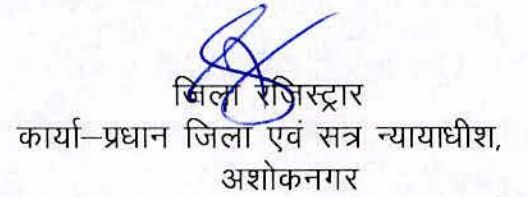 जिला रजिस्ट्रार
कार्या–प्रधान जिला एवं सत्र न्यायाधीश,
अशोकनगर